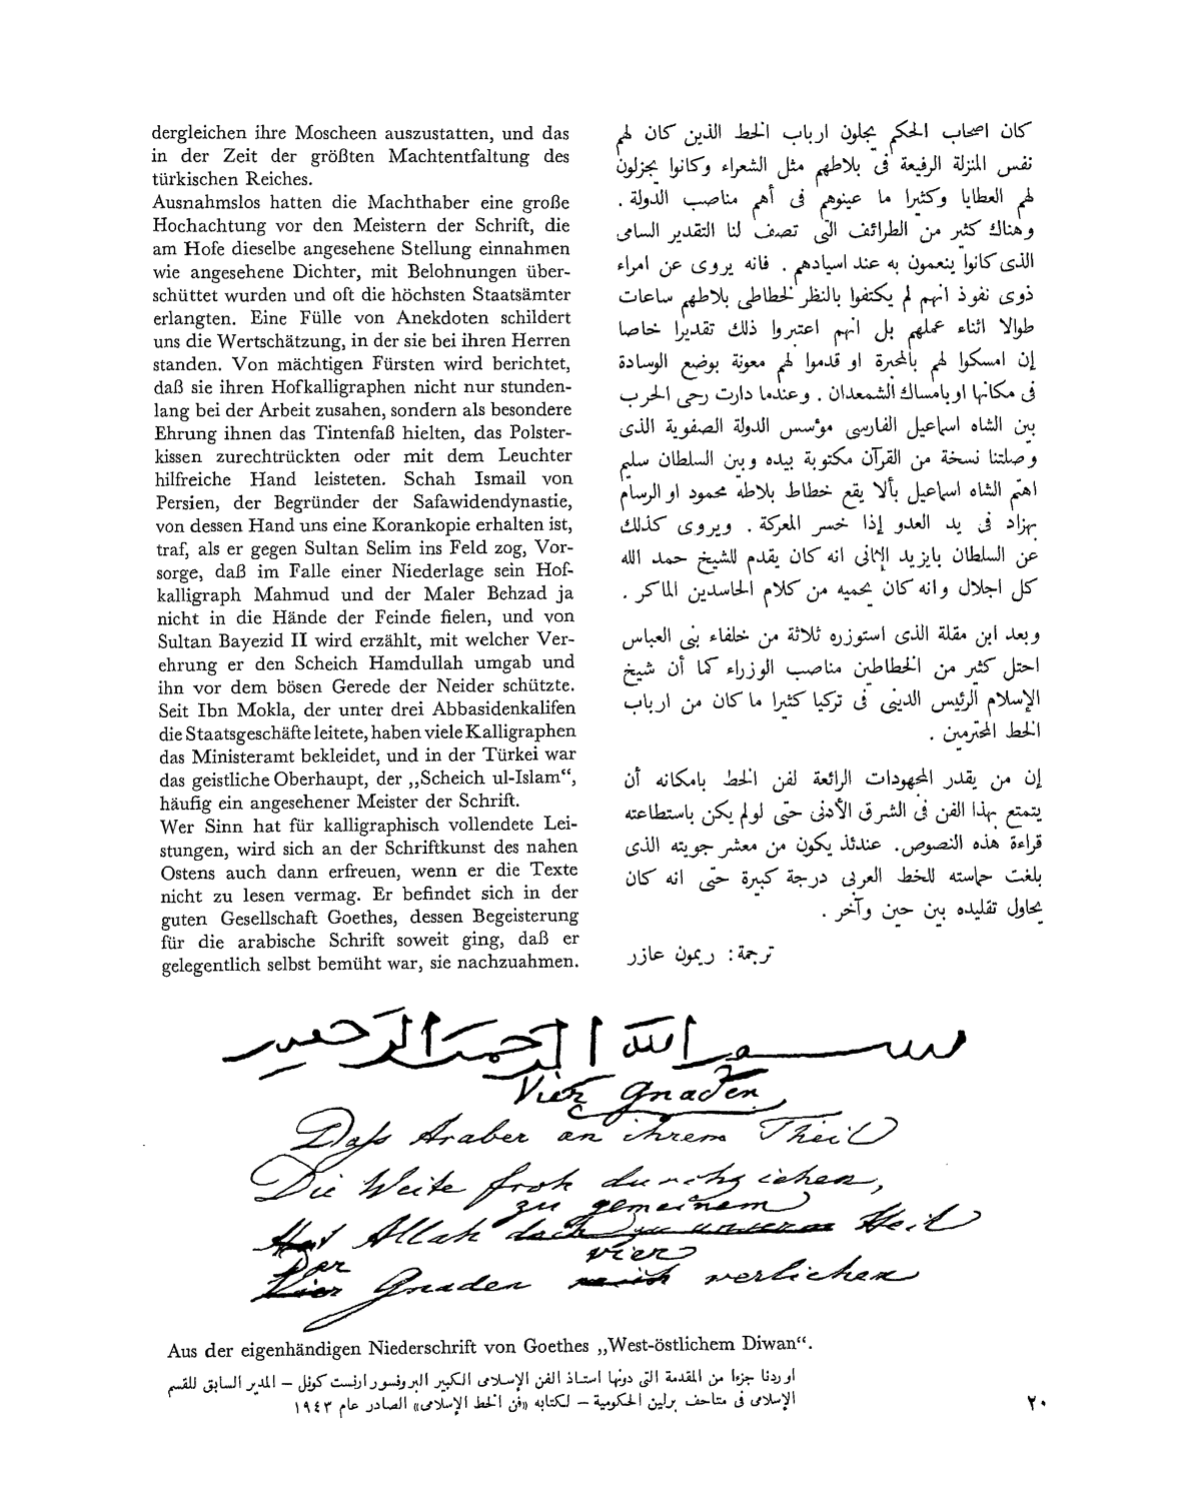 dergleichen ihre Moscheen auszustatten, und das
in der Zeit der größten Machtentfaltung des
türkischen Reiches.
Ausnahmslos hatten die Machthaber eine große
Hochachtung vor den Meistern der Schrift, die
am Hofe dieselbe angesehene Stellung einnahmen
wie angesehene Dichter, mit Belohnungen über-
schüttet wurden und oft die höchsten Staatsämter
erlangten. Eine Fülle von Anekdoten schildert
uns die Wertschätzung, in der sie bei ihren Herren
standen. Von mächtigen Fürsten wird berichtet,
daß sie ihren Hofkalligraphen nicht nur stunden-
lang bei der Arbeit zusahen, sondern als besondere
Ehrung ihnen das Tintenfaß hielten, das Polster-
kissen zurechtrückten oder mit dem Leuchter
hilfreiche Hand leisteten. Schah Ismail von
Persien, der Begründer der Safawidendynastie,
von dessen Hand uns eine Korankopie erhalten ist,
traf, als er gegen Sultan Selim ins Feld zog, Vor-
sorge, daß im Falle einer Niederlage sein Hof-
kalligraph Mahmud und der Maler Behzad ja
nicht in die Hände der Feinde fielen, und von
Sultan Bayezid II wird erzählt, mit welcher Ver-
ehrung er den Scheich Hamdullah umgab und
ihn vor dem bösen Gerede der Neider schützte.
Seit Ibn Mokla, der unter drei Abbasidenkalifen
die Staatsgeschäfte leitete, haben viele Kalligraphen
das Ministeramt bekleidet, und in der Türkei war
das geistliche Oberhaupt, der „Scheich ul-Islam“,
häufig ein angesehener Meister der Schrift.
Wer Sinn hat für kalligraphisch vollendete Lei-
stungen, wird sich an der Schriftkunst des nahen
Ostens auch dann erfreuen, wenn er die Texte
nicht zu lesen vermag. Er befindet sich in der
guten Gesellschaft Goethes, dessen Begeisterung
für die arabische Schrift soweit ging, daß er
gelegentlich selbst bemüht war, sie nachzuahmen.
كان اصحاب الحكم يجلون ارباب الخط الذين كان لهم
نفس المنزلة الرفيعة فى بلاطهم مثل الشعراء وكانوا يجزلون
لهم العطايا وكثيرا ما عينوهم فى أهم مناصب الدولة .
وهناك كثير من الطرائف التى تصف لنا التقدير السامى
الذى كانوا ينعمون به عند اسيادهم . فانه يروى عن امراء
ذوى نفوذ انهم لم يكتفوا بالنظر لخطاطى بلاطهم ساعات
طوالا اثناء عملهم بل انهم اعتبروا ذلك تقديرا خاصا
إن امسكوا لهم بالمحبرة او قدموا لهم معونة بوضع الوسادة
فى مكانها او بامساك الشمعدان . وعندما دارت رحى الحرب
بين الشاه اسماعيل الفارسى مؤسس الدولة الصفوية الذى
وصلتنا نسخة من القرآن مكتوبة بيده وبين السلطان سليم
اهتم الشاه اسماعيل بألا يقع خطاط بلاطه محمود او الرسام
بهزاد فى يد العدو إذا خسر المعركة . ويروى كذلك
عن السلطان بايزيد الثانى انه كان يقدم للشيخ حمد الله
كل اجلال وانه كان يحميه من كلام الحاسدين الماكر .
وبعد ابن مقلة الذى استوزره ثلاثة من خلفاء بنى العباس
احتل كثير من الخطاطين مناصب الوزراء كما أن شيخ
الإسلام الرئيس الدينى فى تركيا كثيرا ما كان من ارباب
الخط المحترمين .
إن من يقدر المجهودات الرائعة لفن الخط بامكانه أن
يتمتع بهذا الفن فى الشرق الأدنى حتى لو لم يكن باستطاعته
قراءة هذه النصوص. عندئذ يكون من معشر جويته الذى
بلغت حماسته للخط العربى درجة كبيرة حتى انه كان
يحاول تقليده بين حين وآخر .
ترجمة: ريمون عازر
بسم الله الرحمن الرحيم
Vier Gnaden
Dass Araber an ihrem Theil
Die Weite froh durchziehen,
zu gemeinem
Hat Allah doch zu unserm Heil
Der vier
Vier Gnaden verliehen
Aus der eigenhändigen Niederschrift von Goethes „West-östlichem Diwan“.
اوردنا جزءا من المقدمة التى دونها استاذ الفن الإسلامى الكبير البروفسور ارنست كونل – المدير السابق للقسم
الإسلامى فى متاحف برلين الحكومية – لكتابه «فن الخط الإسلامى» الصادر عام ١٩٤٣
٢٠